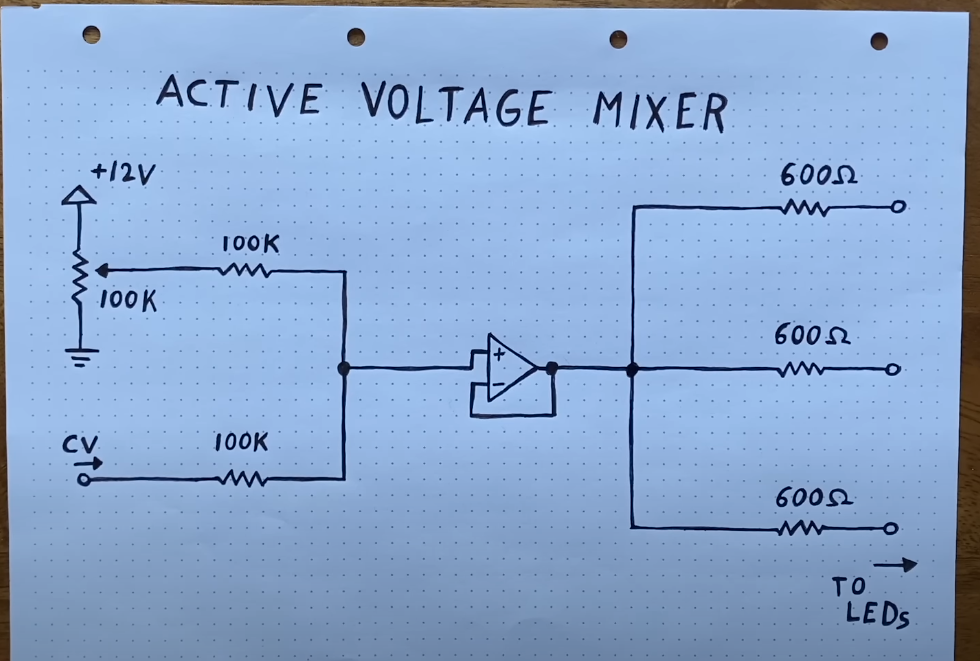 ACTIVE VOLTAGE MIXER
+12V
600Ω
100K
100K
600Ω
+
−
CV
100K
600Ω
TO
LEDs